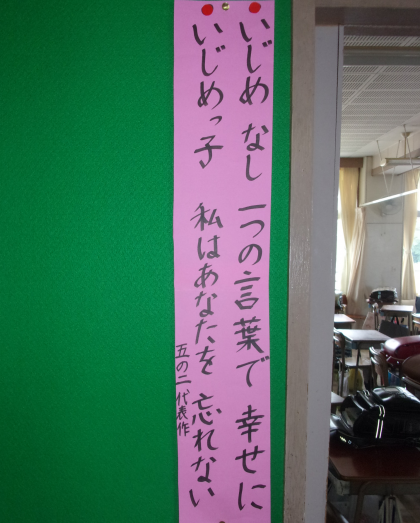 いじめ なし 一つの言葉で 幸せに
いじめっ子 私はあなたを 忘れない
五の二 代表作